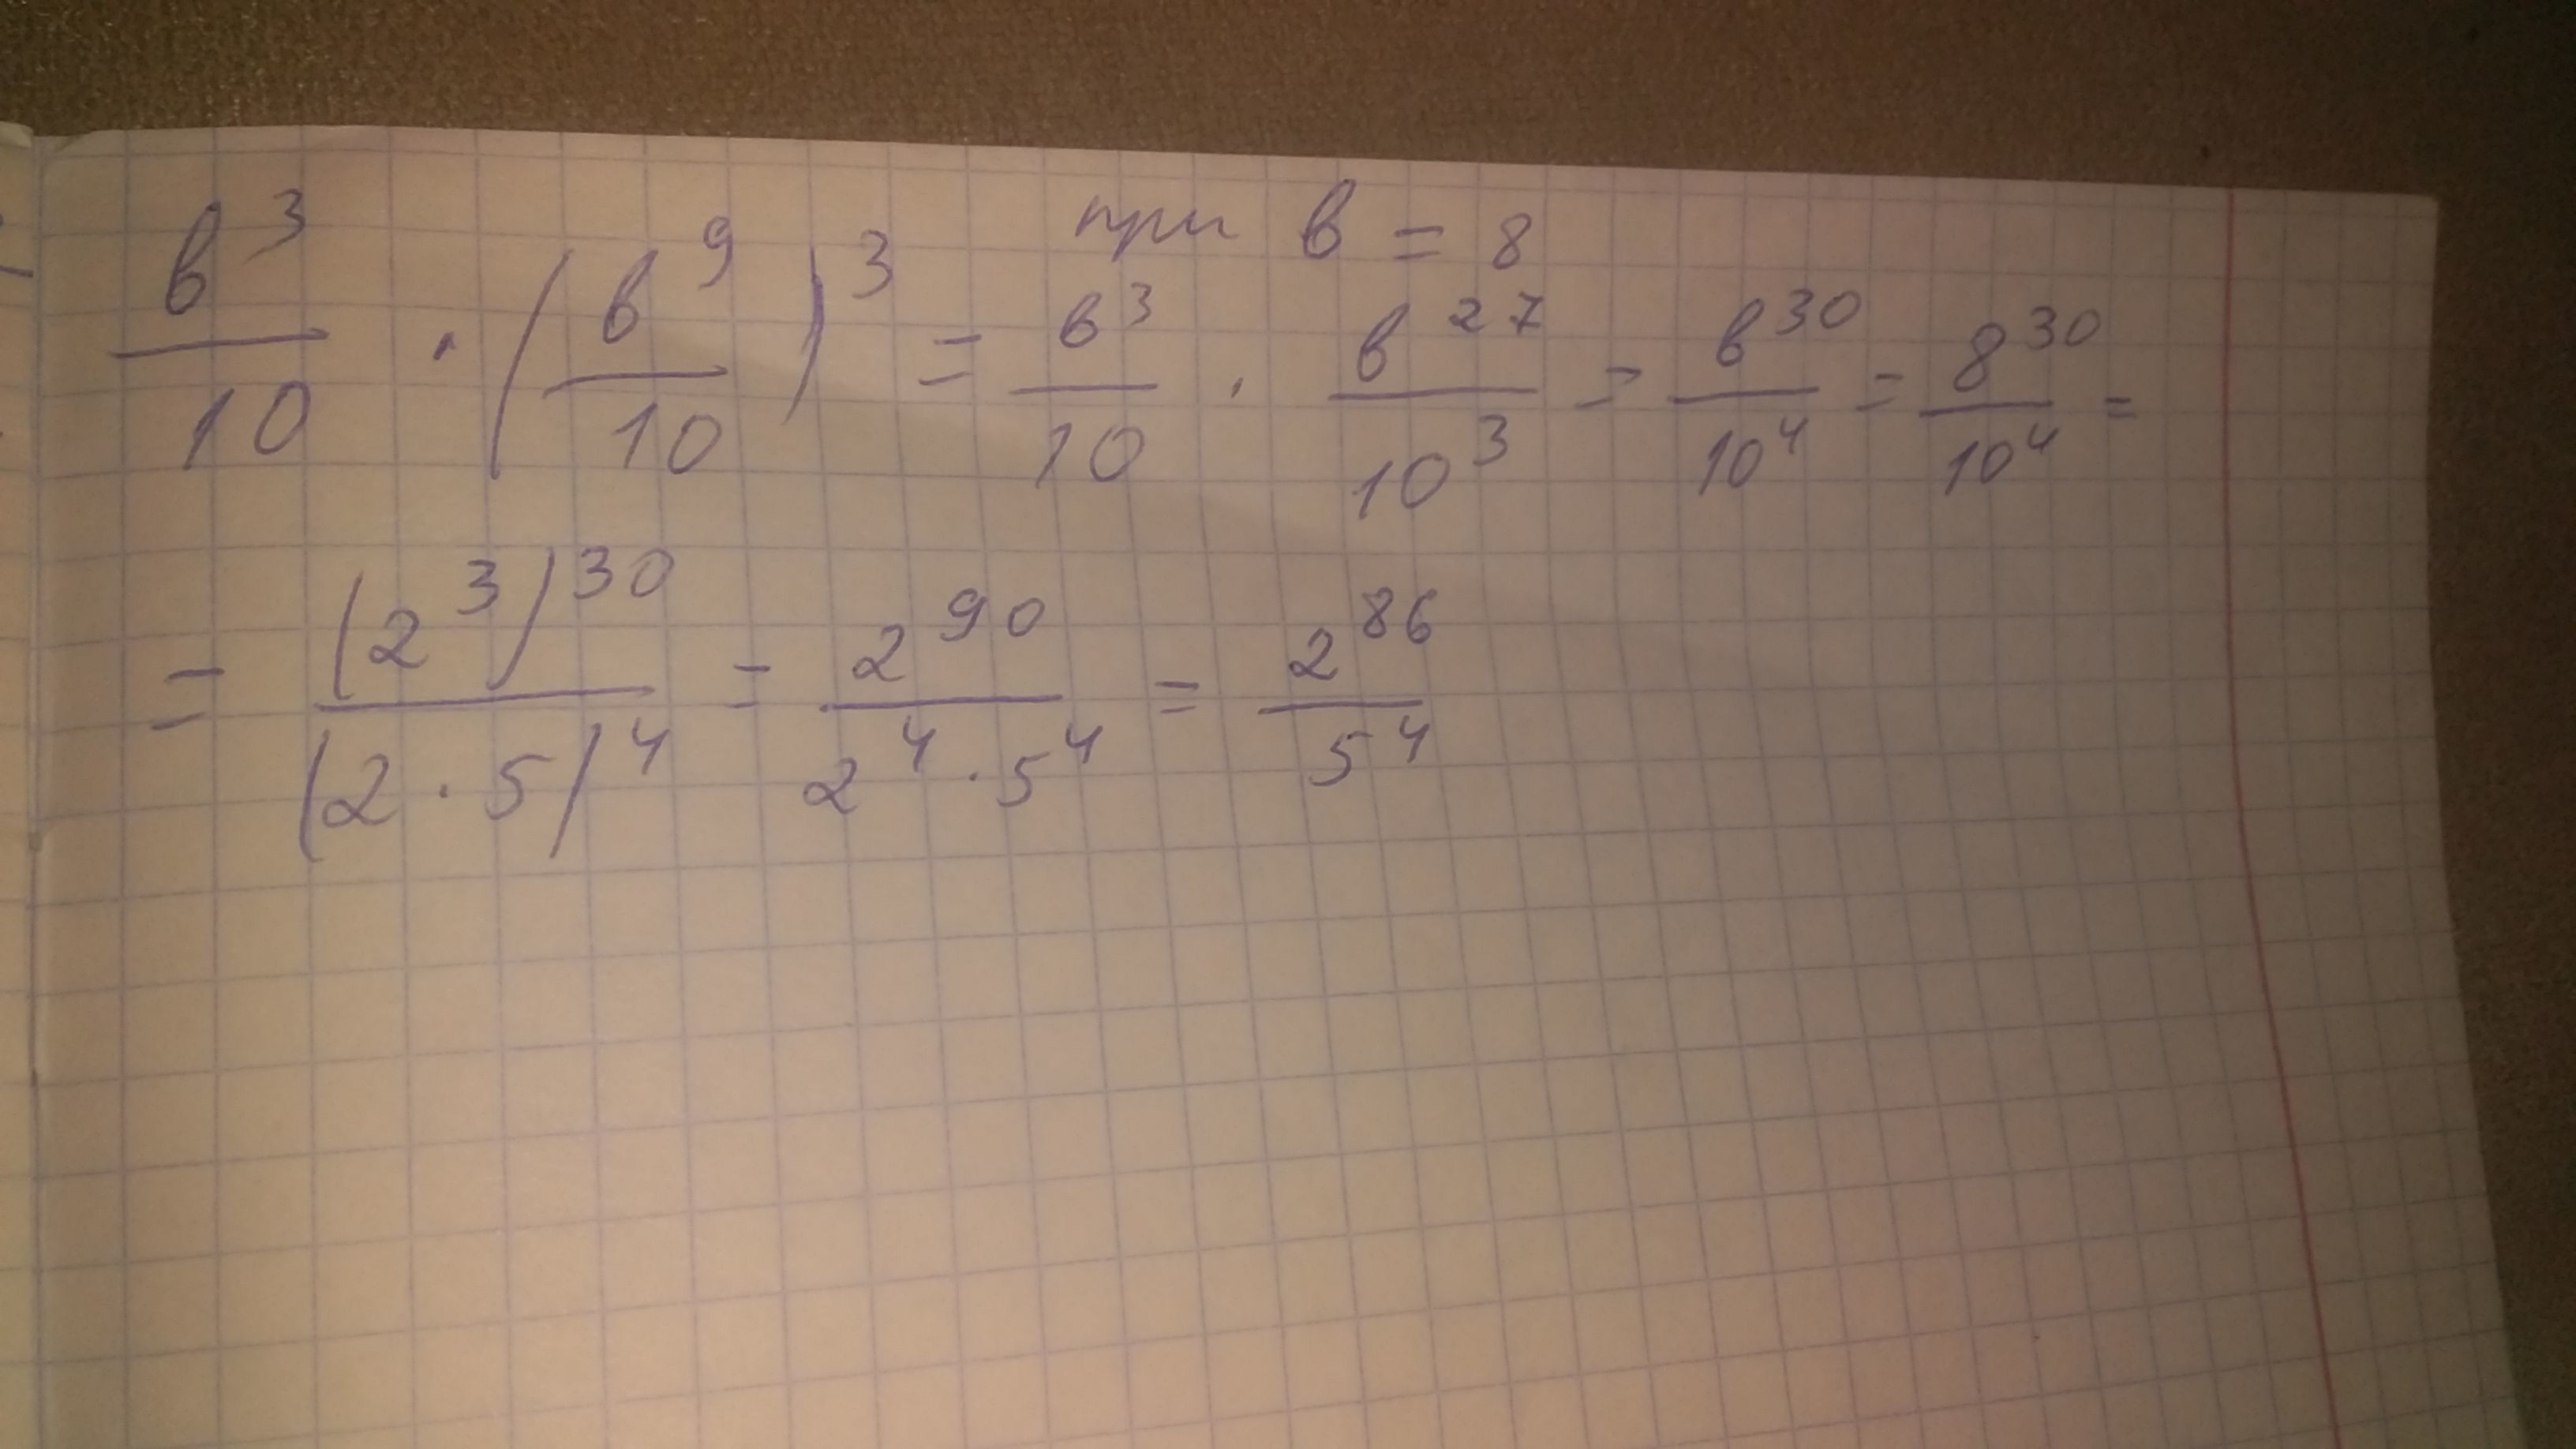 при в = 8
в³/10 · (в⁹/10)³ = в³/10 · в²⁷/10³ = в³⁰/10⁴ = 8³⁰/10⁴ =
= (2³)³⁰/(2 · 5)⁴ = 2⁹⁰/2⁴ · 5⁴ = 2⁸⁶/5⁴